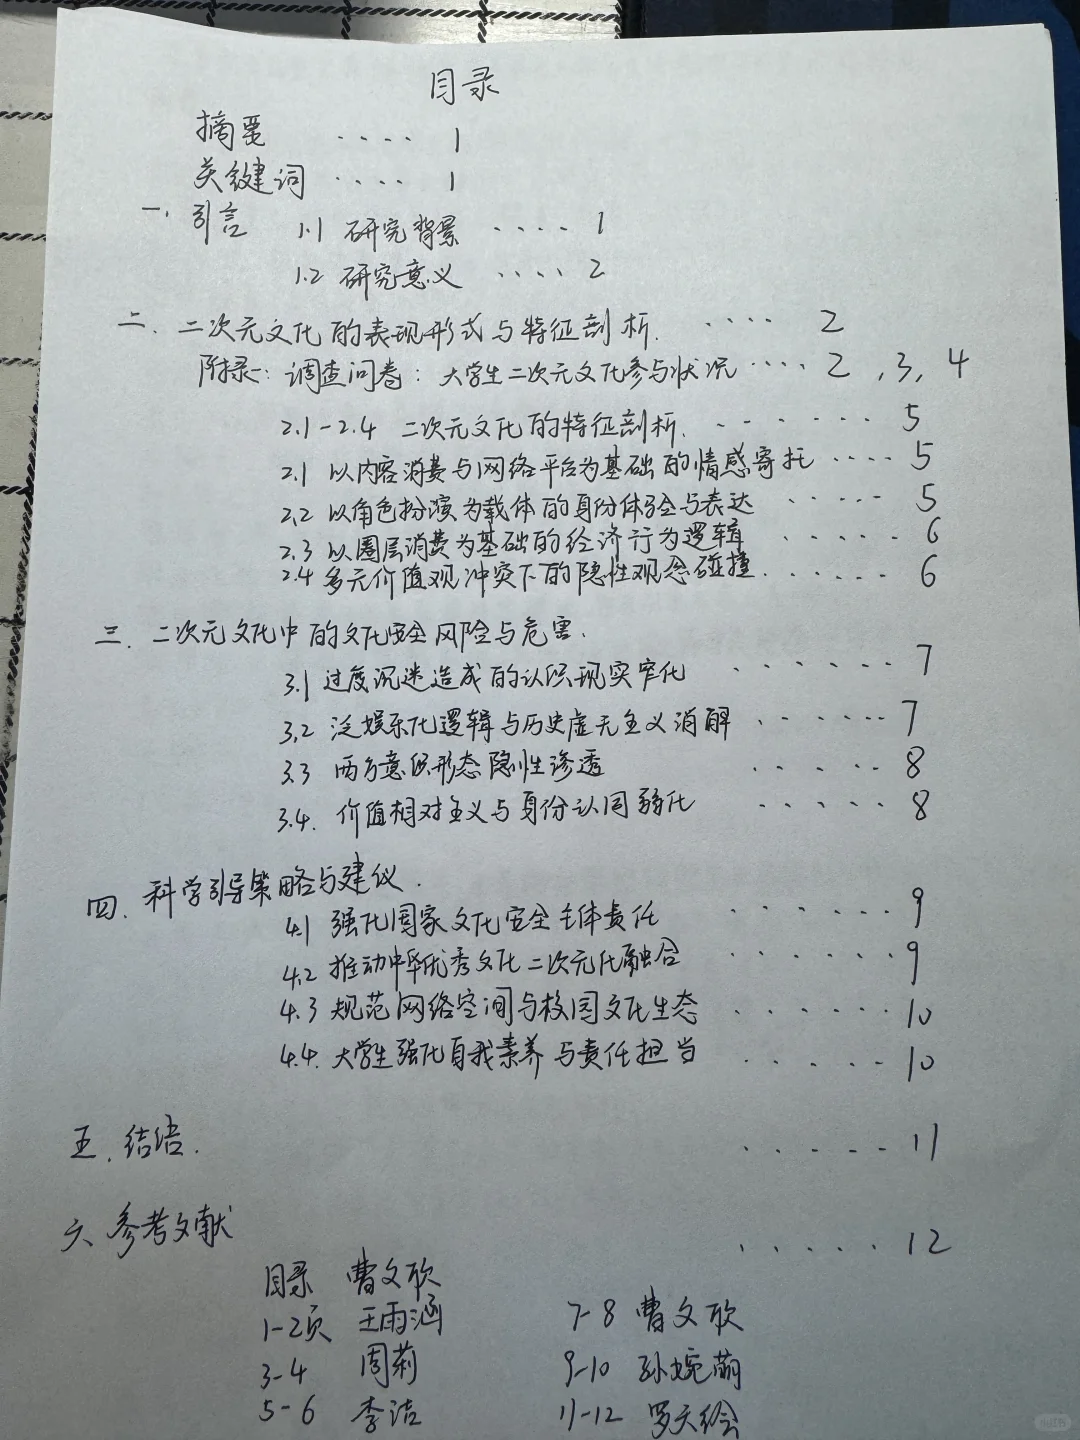 目录
摘要 ···· 1
关键词 ···· 1
一、引言 1.1 研究背景 ···· 1
1.2 研究意义 ···· 2
二、二次元文化的表现形式与特征剖析. ···· 2
附录一：调查问卷：大学生二次元文化参与状况 ···· 2 ,3, 4
2.1-2.4 二次元文化的特征剖析. ······ 5
2.1 以内容消费与网络平台为基础的情感寄托 ···· 5
2.2 以角色扮演为载体的身份体验与表达 ····· 5
2.3 以圈层消费为基础的经济行为逻辑 ····· 6
2.4 多元价值观冲突下的隐性观念碰撞. ····· 6
三、二次元文化中的文化安全风险与危害.
3.1 过度沉迷造成的认识现实窄化 ······ 7
3.2 泛娱乐化逻辑与历史虚无主义消解 ······ 7
3.3 西方意识形态隐性渗透 ····· 8
3.4. 价值相对主义与身份认同弱化 ····· 8
四、科学引导策略与建议.
4.1 强化国家文化安全主体责任 ······ 9
4.2 推动中华优秀文化二次元化融合 ······ 9
4.3 规范网络空间与校园文化生态 ······ 10
4.4. 大学生强化自我素养与责任担当 ····· 10
五、结语. ····· 11
六、参考文献 ····· 12
目录 曹文欣
1-2页 王雨涵 7-8 曹文欣
3-4 周莉 9-10 孙婉萌
5-6 李洁 11-12 罗天绘